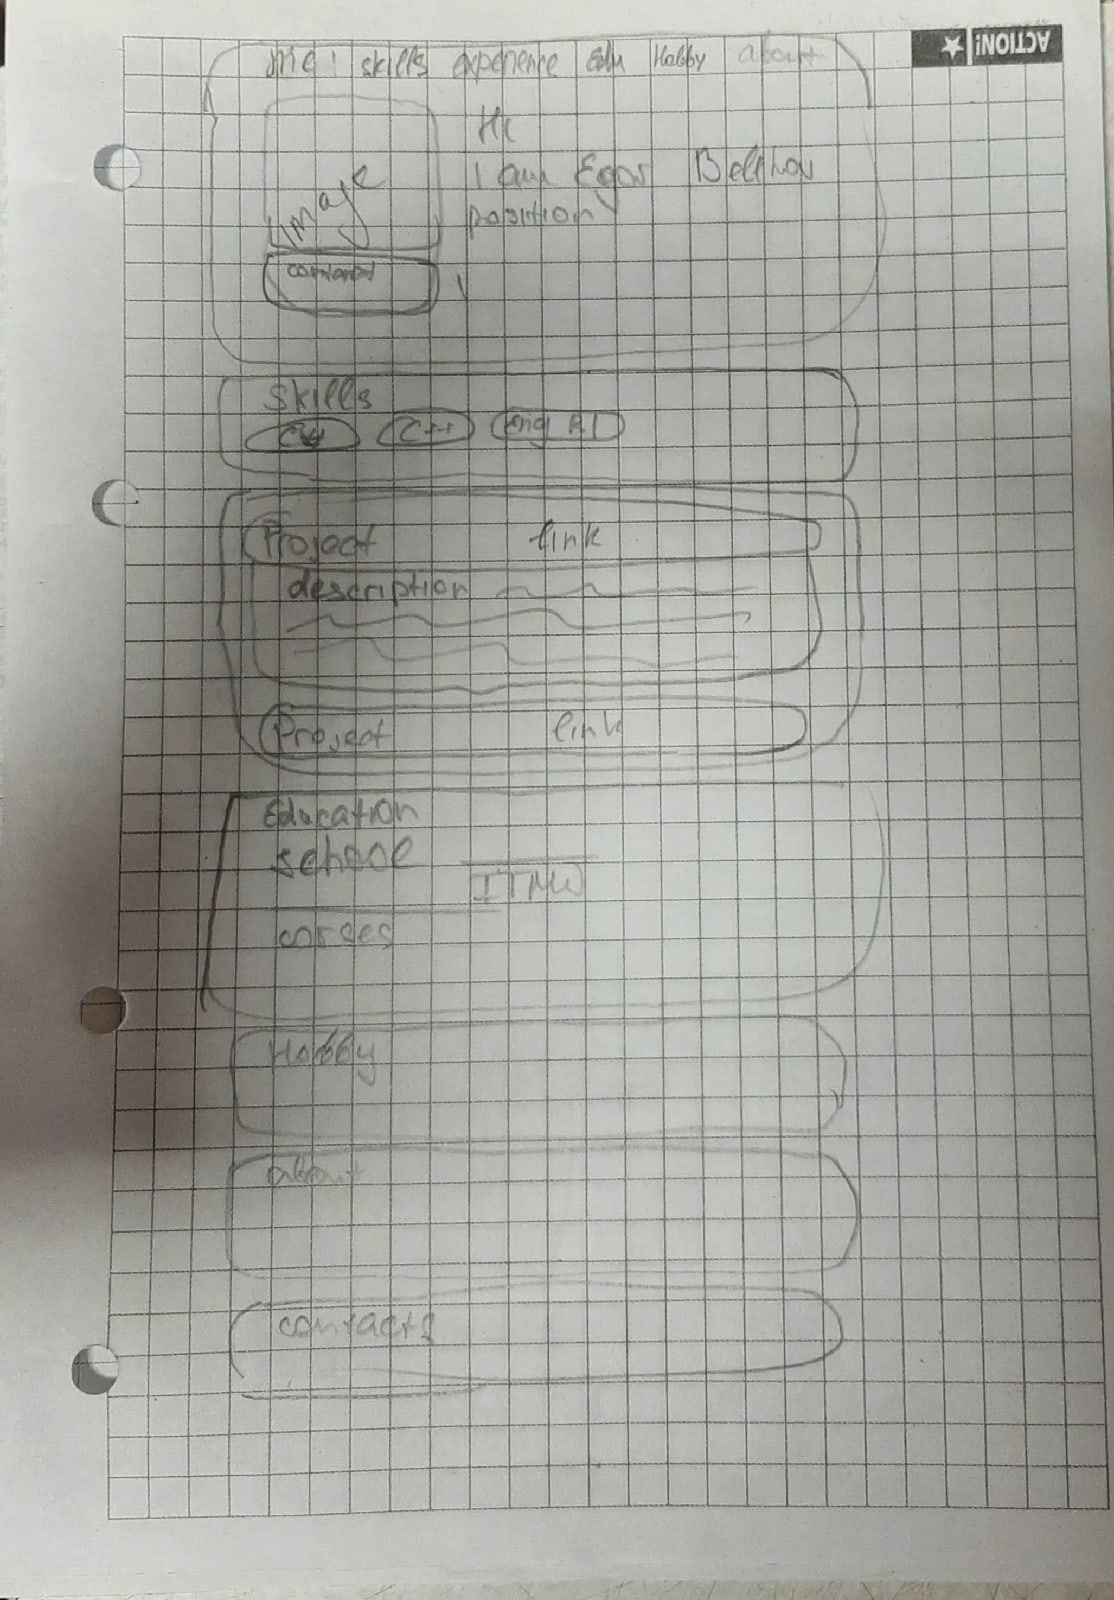 ACTION!
skills experience Edu Hobby about
Hi
I am Egor
position
image
Skills
C++ Eng A1
Project link
description
Project link
Education
school
ITMO
corses
Hobby
about
contacts